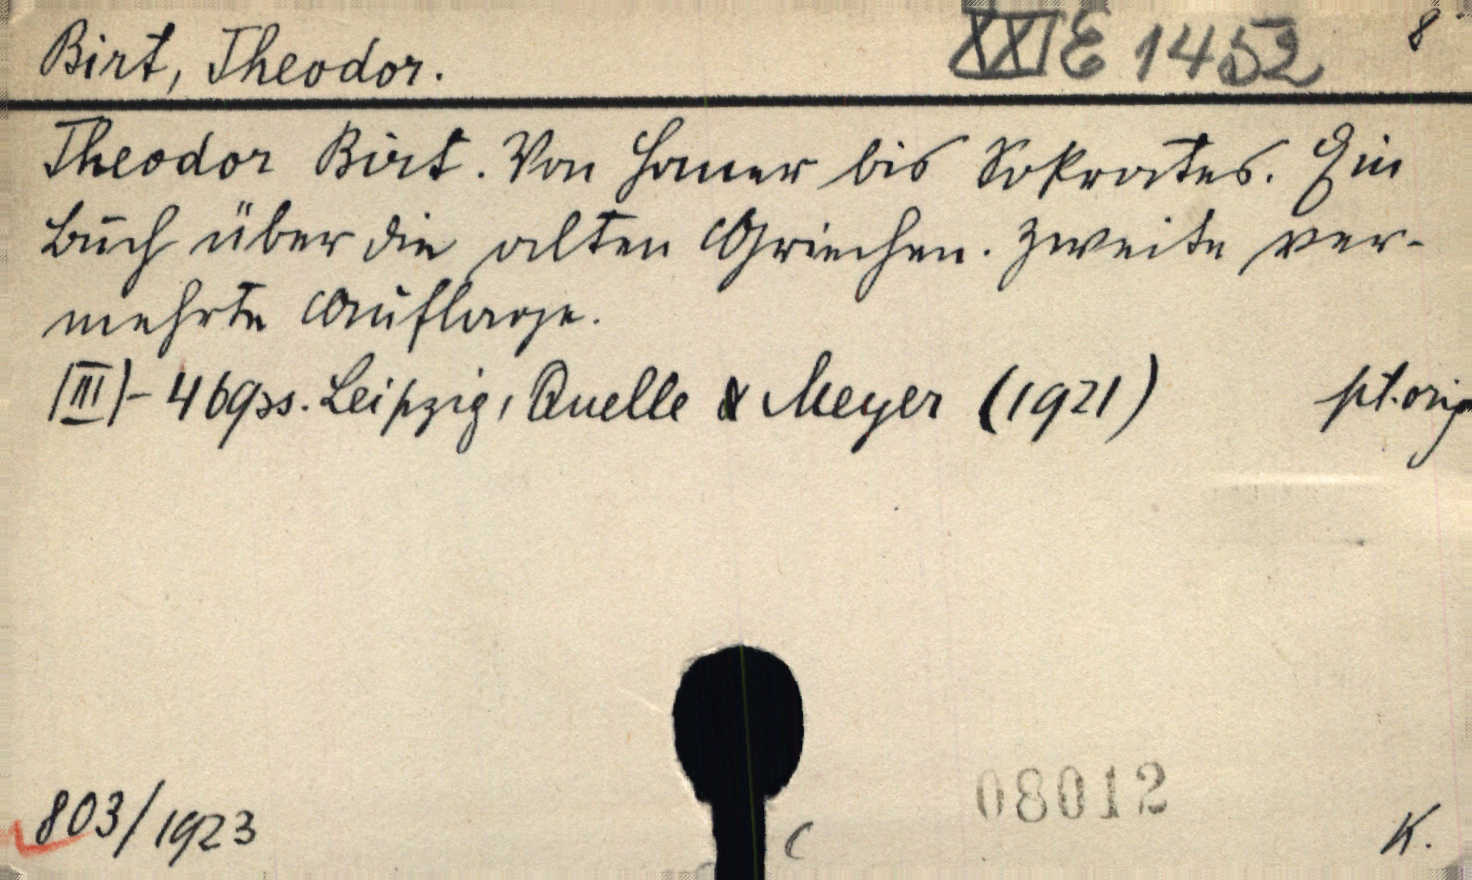 Birt, Theodor. XXI E 1452 8°
Theodor Birt. Von Homer bis Sokrates. Ein
Buch über die alten Griechen. Zweite ver-
mehrte Auflage.
(III)-469ss. Leipzig, Quelle & Meyer (1921) pt.orig
803/1923
08012
K.